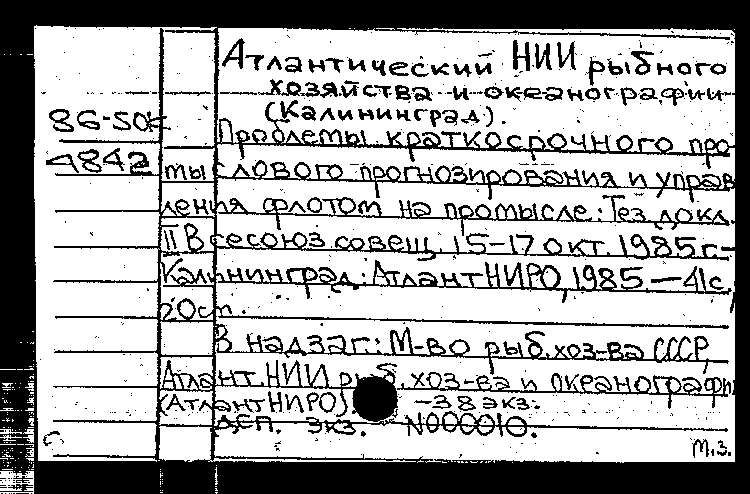 Атлантический НИИ рыбного
хозяйства и океанографии
(Калининград).
86-50к
Проблемы краткосрочного про-
4842
мыслового прогнозирования и управ
ления флотом на промысле: Тез. докл.
II Всесоюз. совещ. 15-17 окт. 1985 г.-
Калининград: АтлантНИРО, 1985.-41с.,
20см.
В надзаг.: М-во рыб. хоз-ва СССР,
Атлант. НИИ рыб. хоз-ва и океанографи
(АтлантНИРО). -38 экз.
деп. экз. N000010.
м.з.